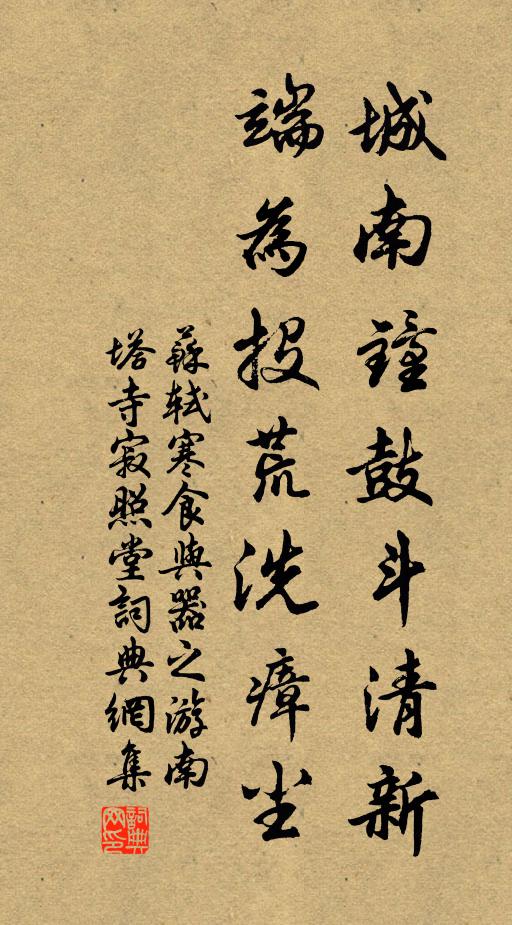 城南鐘鼓斗清新
端為投荒洗瘴尘
蘇軾寒食與器之游南
塔寺寂照堂詞典網集
詞典网印